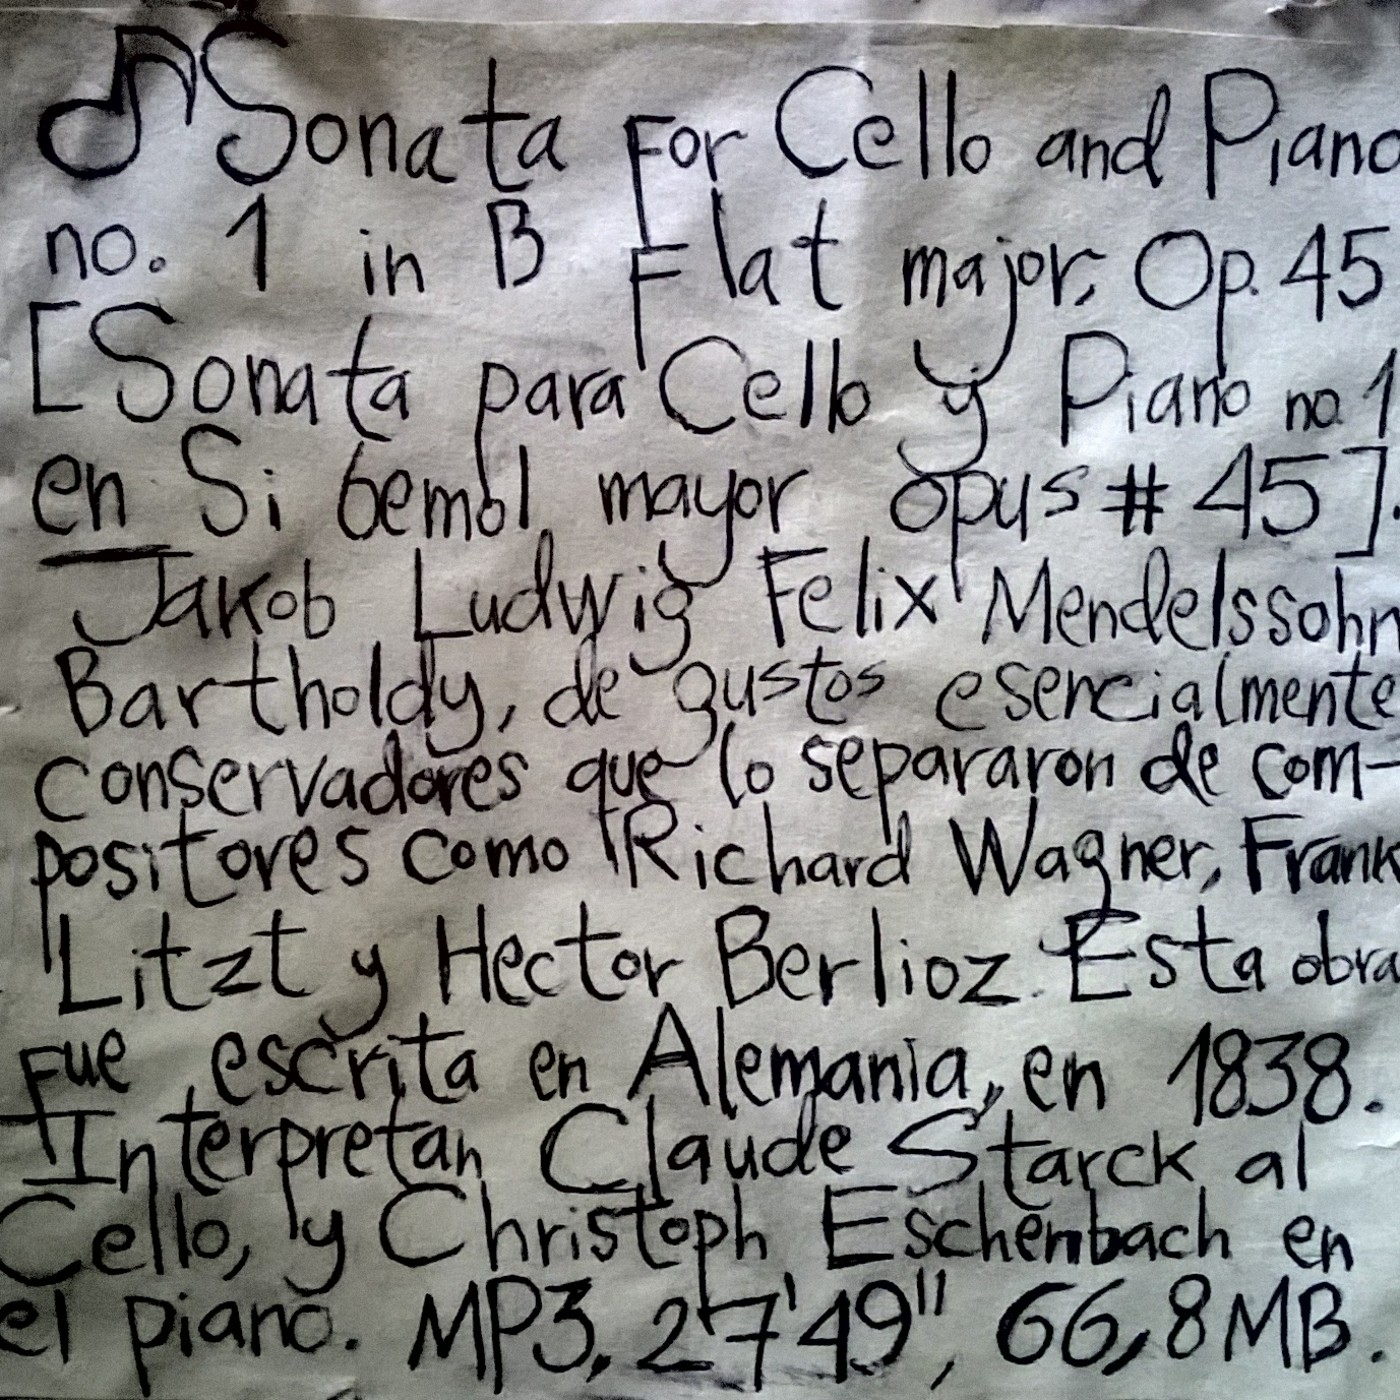 ♫ Sonata For Cello and Piano
no. 1 in B Flat major, Op. 45
[Sonata para Cello y Piano no. 1
en Si bemol mayor opus # 45].
Jakob Ludwig Felix Mendelssohn
Bartholdy, de gustos esencialmente
conservadores que lo separaron de com-
positores como Richard Wagner, Frank
Litzt y Hector Berlioz. Esta obra
fue escrita en Alemania, en 1838.
Interpretan Claude Starck al
Cello, y Christoph Eschenbach en
el piano. MP3, 27'49", 66,8MB.